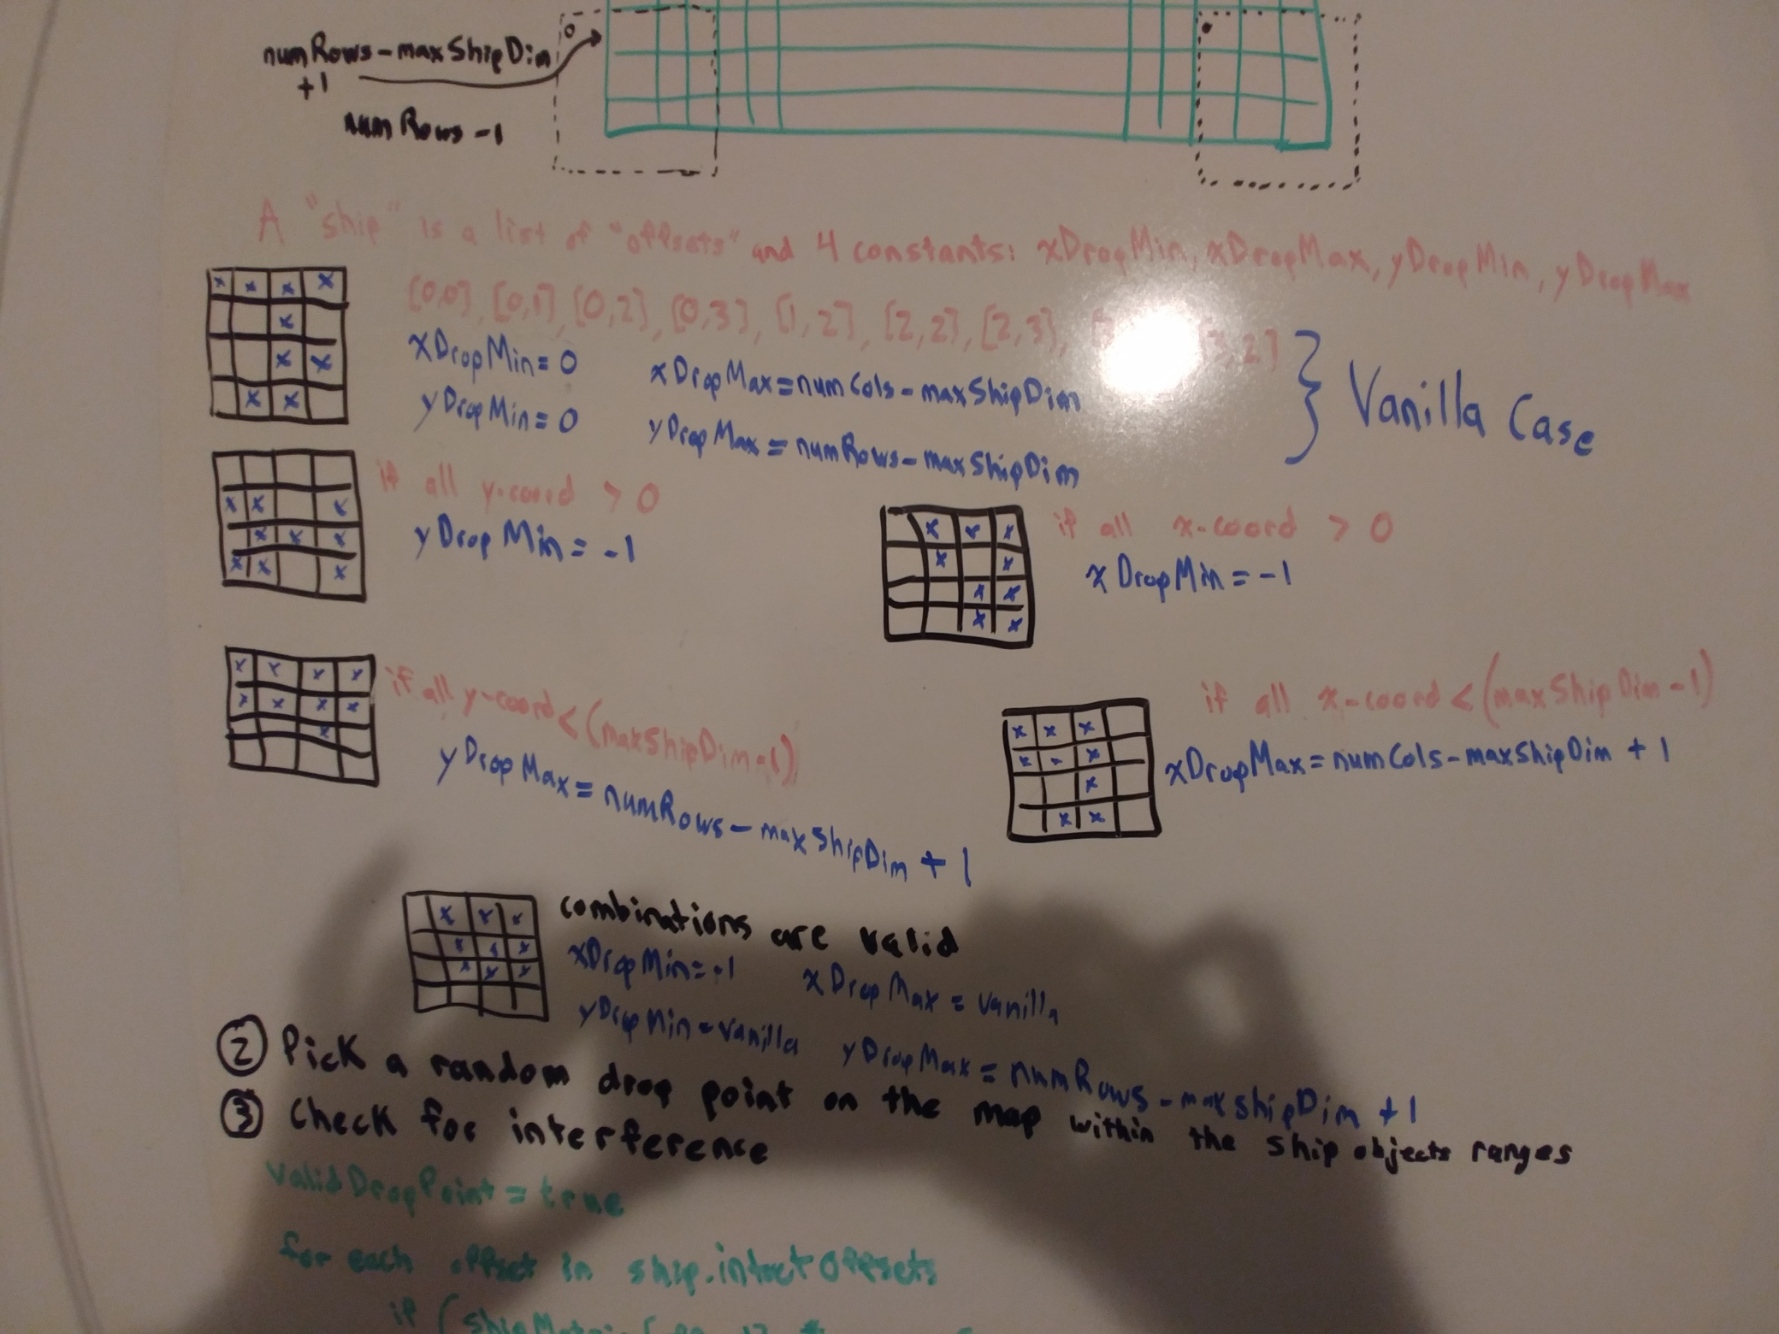 numRows-maxShipDim
+1
numRows-1
A "ship" is a list of "offsets" and 4 constants: xDropMin, xDropMax, yDropMin, yDropMax
[0,0], [0,1], [0,2], [0,3], [1,2], [2,2], [2,3],
xDropMin=0 xDropMax=numCols-maxShipDim
yDropMin=0 yDropMax=numRows-maxShipDim
} Vanilla Case
if all y-coord > 0
yDropMin=-1
if all x-coord > 0
xDropMin=-1
if all y-coord<(maxShipDim-1)
yDropMax=numRows-maxShipDim+1
if all x-coord<(maxShipDim-1)
xDropMax=numCols-maxShipDim+1
combinations are valid
xDropMin=-1 xDropMax=vanilla
yDropMin=vanilla yDropMax=numRows-maxShipDim+1
② Pick a random drop point on the map within the ship objects ranges
③ Check for interference
validDropPoint=true
for each offset in ship.intactOffsets
if (